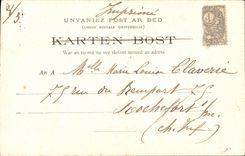 Imprimé
UNVANIEZ POST AR BED
(UNION POSTALE UNIVERSELLE)
KARTEN BOST
War an tu-ma na vez skrivet nemed an adres
An A Melle Marie Louise Claverie
77 rue du Rempart 77
Rochefort s/m
(Ch. Inf)